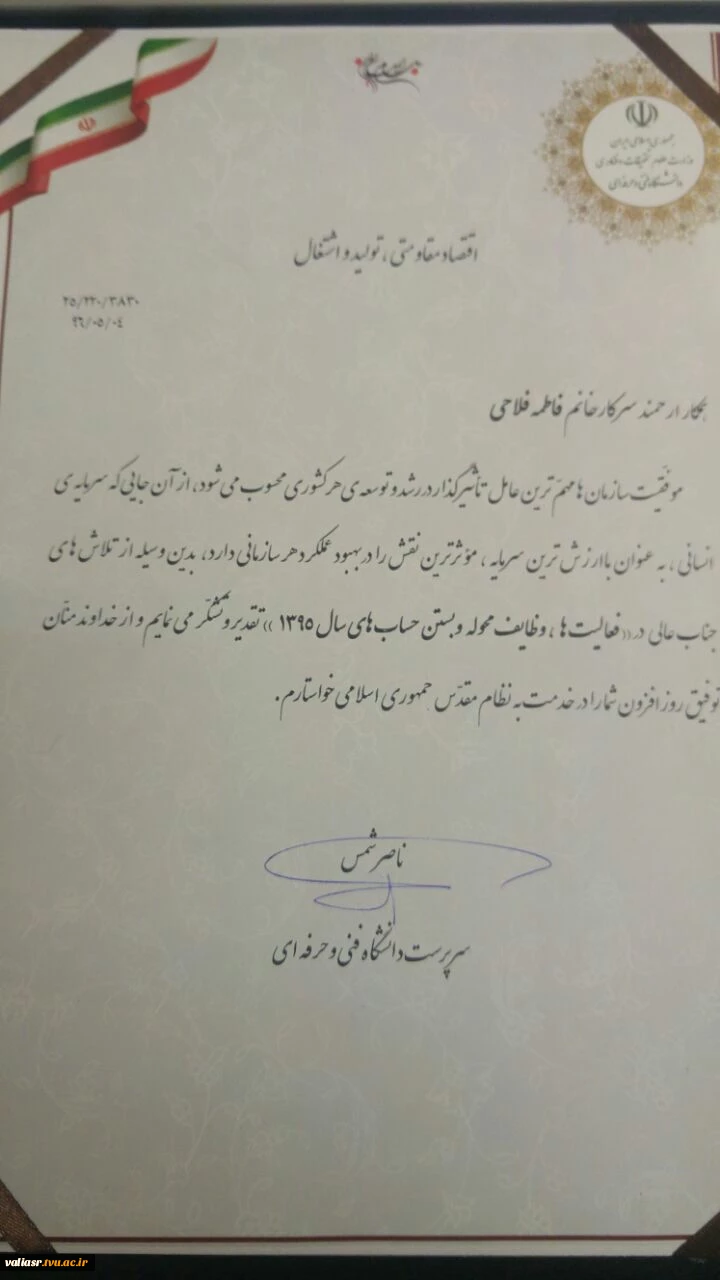 جمهوری اسلامی ایران
وزارت علوم تحقیقات و فناوری
دانشگاه فنی و حرفه ای
اقتصاد مقاومتی، تولید و اشتغال
۲۵/۲۲۰/۳۸۳۰
۹۶/۰۵/۰۴
همکار ارجمند سرکار خانم فاطمه فلاحی
موفّقیت سازمان ها مهمّ ترین عامل تأثیرگذار در رشد و توسعه ی هر کشوری محسوب می شود، از آن جایی که سرمایه ی
انسانی، به عنوان باارزش ترین سرمایه، مؤثرترین نقش را در بهبود عملکرد هر سازمانی دارد، بدین وسیله از تلاش های
جناب عالی در «فعالیت ها، وظایف محوله و بستن حساب های سال ۱۳۹۵» تقدیر و تشکّر می نمایم و از خداوند منّان
توفیق روز افزون شما را در خدمت به نظام مقدّس جمهوری اسلامی خواستارم.
ناصر شمس
سرپرست دانشگاه فنی و حرفه ای
valiasr.tvu.ac.ir